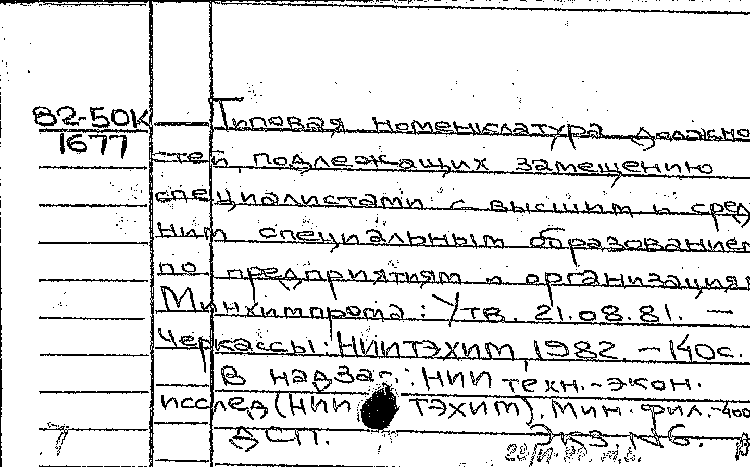 82-50К
1677
Типовая номенклатура должно
стей, подлежащих замещению
специалистами с высшим и сред
ним специальным образованием
по предприятиям и организациям
Минхимпрома: Утв. 21.08.81. —
Черкассы: НИИТЭХИМ, 1982. – 140с.
В надзаг.: НИИ техн.-экон.
исслед (НИИ ТЭХИМ). Мин. фил. -400
ДСП. Экз. №6.